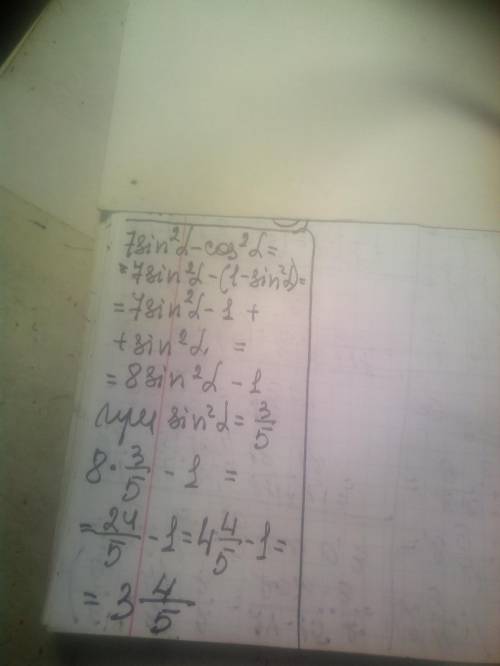 7sin²α-cos²α=
=7sin²α-(1-sin²α)=
=7sin²α-1+
+sin²α =
=8sin²α-1
при sin²α=3/5
8·3/5-1=
=24/5-1=4 4/5-1=
=3 4/5